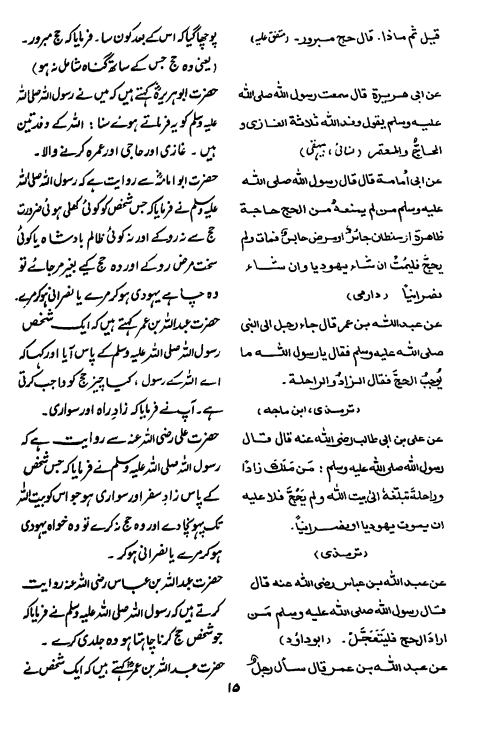 قیل ثم ماذا۔ قال حج مبرور۔ (متفق علیہ)
عن ابی ھریرۃ قال سمعت رسول اللہ صلی اللہ
علیہ وسلم یقول وفد اللہ ثلاثۃ الغازی و
الحاجّ والمعتمر (نسائی، بیہقی)
عن ابی أمامۃ قال قال رسول اللہ صلی اللہ
علیہ وسلم من لم یمنعہ من الحج حاجۃ
ظاھرۃ او سلطان جائرٌ او مرض حابسٌ فمات ولم
یحجّ فلیمُت ان شاء یھودیا وان شاء
نصرانیًا (دارمی)
عن عبد اللہ بن عمر قال جاء رجل الی النبی
صلی اللہ علیہ وسلم فقال یا رسول اللہ ما
یُوجبُ الحجّ فقال الزادُ والراحلۃ۔
(ترمذی، ابن ماجہ)
عن علی بن ابی طالب رضی اللہ عنہ قال قال
رسول اللہ صلی اللہ علیہ وسلم: مَن مَلَکَ زادًا
و راحلۃً تبلغہٗ الی بیت اللہ ولم یَحُجَّ فلا علیہ
ان یموت یھودیا او نصرانیاً۔
(ترمذی)
عن عبد اللہ بن عباس رضی اللہ عنہ قال
قال رسول اللہ صلی اللہ علیہ وسلم مَن
ارادَ الحج فلیَتَعَجَّل۔ (ابوداؤد)
عن عبد اللہ بن عمر قال سأل رجلٌ
پوچھا گیا کہ اس کے بعد کون سا۔ فرمایا کہ حج مبرور۔
(یعنی وہ حج جس کے ساتھ گناہ شامل نہ ہو)
حضرت ابو ہریرہؓ کہتے ہیں کہ میں نے رسول اللہ صلی اللہ
علیہ وسلم کو یہ فرماتے ہوئے سنا: اللہ کے وفد تین
ہیں۔ غازی اور حاجی اور عمرہ کرنے والا۔
حضرت ابو امامہؓ سے روایت ہے کہ رسول اللہ صلی اللہ
علیہ وسلم نے فرمایا کہ جس شخص کو کوئی کھلی ہوئی ضرورت
حج سے نہ روکے اور نہ کوئی ظالم بادشاہ یا کوئی
سخت مرض روکے اور وہ حج کیے بغیر مر جائے تو
وہ چاہے یہودی ہو کر مرے یا نصرانی ہو کر مرے۔
حضرت عبد اللہ بن عمر کہتے ہیں کہ ایک شخص
رسول اللہ صلی اللہ علیہ وسلم کے پاس آیا اور کہا کہ
اے اللہ کے رسول، کیا چیز حج کو واجب کرتی
ہے۔ آپ نے فرمایا کہ زادِ راہ اور سواری۔
حضرت علی رضی اللہ عنہ سے روایت ہے کہ
رسول اللہ صلی اللہ علیہ وسلم نے فرمایا کہ جس شخص
کے پاس زادِ سفر اور سواری ہو جو اس کو بیت اللہ
تک پہونچا دے اور وہ حج نہ کرے تو وہ خواہ یہودی
ہو کر مرے یا نصرانی ہو کر۔
حضرت عبد اللہ بن عباس رضی اللہ عنہ روایت
کرتے ہیں کہ رسول اللہ صلی اللہ علیہ وسلم نے فرمایا کہ
جو شخص حج کرنا چاہتا ہو وہ جلدی کرے۔
حضرت عبد اللہ بن عمرؓ کہتے ہیں کہ ایک شخص نے
۱۵